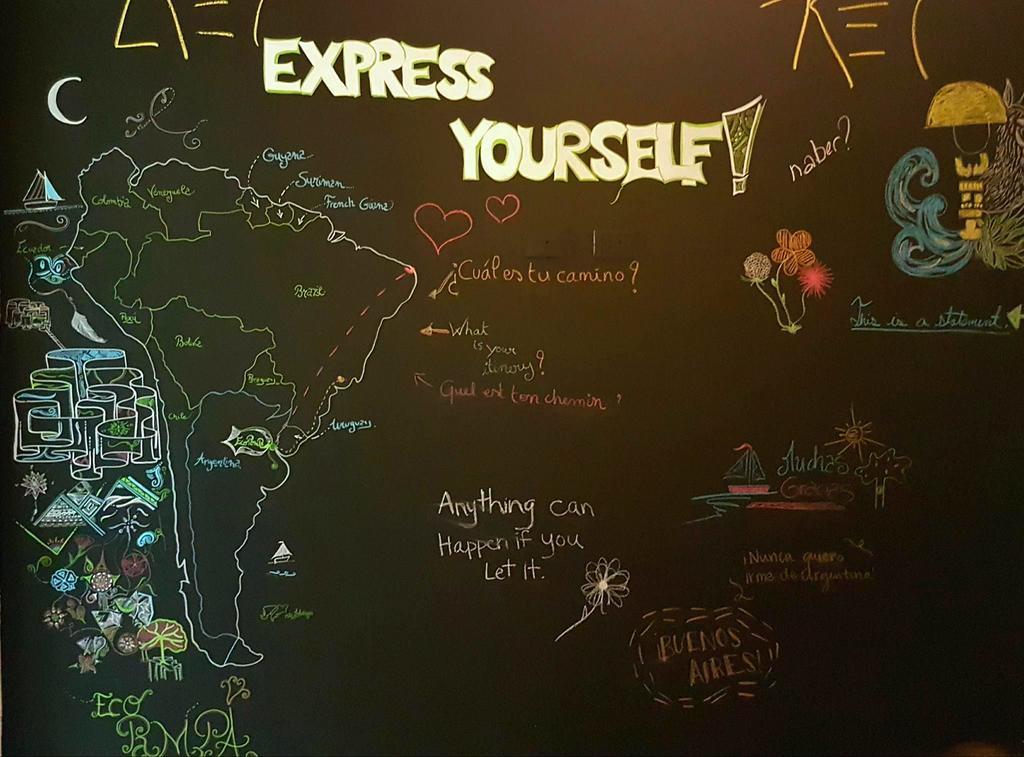 EXPRESS
YOURSELF!
naber?
Guyana
Surinam
French Guiana
Venezuela
Colombia
Ecuador
Brazil
¿Cuál es tu camino?
This is a statement.
What
is your
itinery?
Bolivia
Quel est ton chemin ?
Chile
Uruguay
Argentina
Muchas
Gracias
Anything can
Happen if you
Let it.
¡Nunca quiero
irme de Argentina!
¡BUENOS
AIRES!
ECO
PAMPA